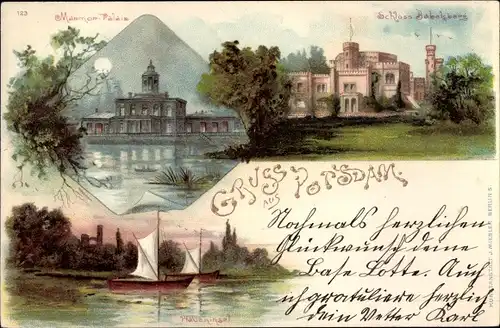 123
Marmor-Palais
Schloss Babelsberg
GRUSS AUS POTSDAM.
Nochmals herzlichen
Glückwunsch deine
Base Lotte. Auch
ich gratuliere herzlich
dein Vetter Karl